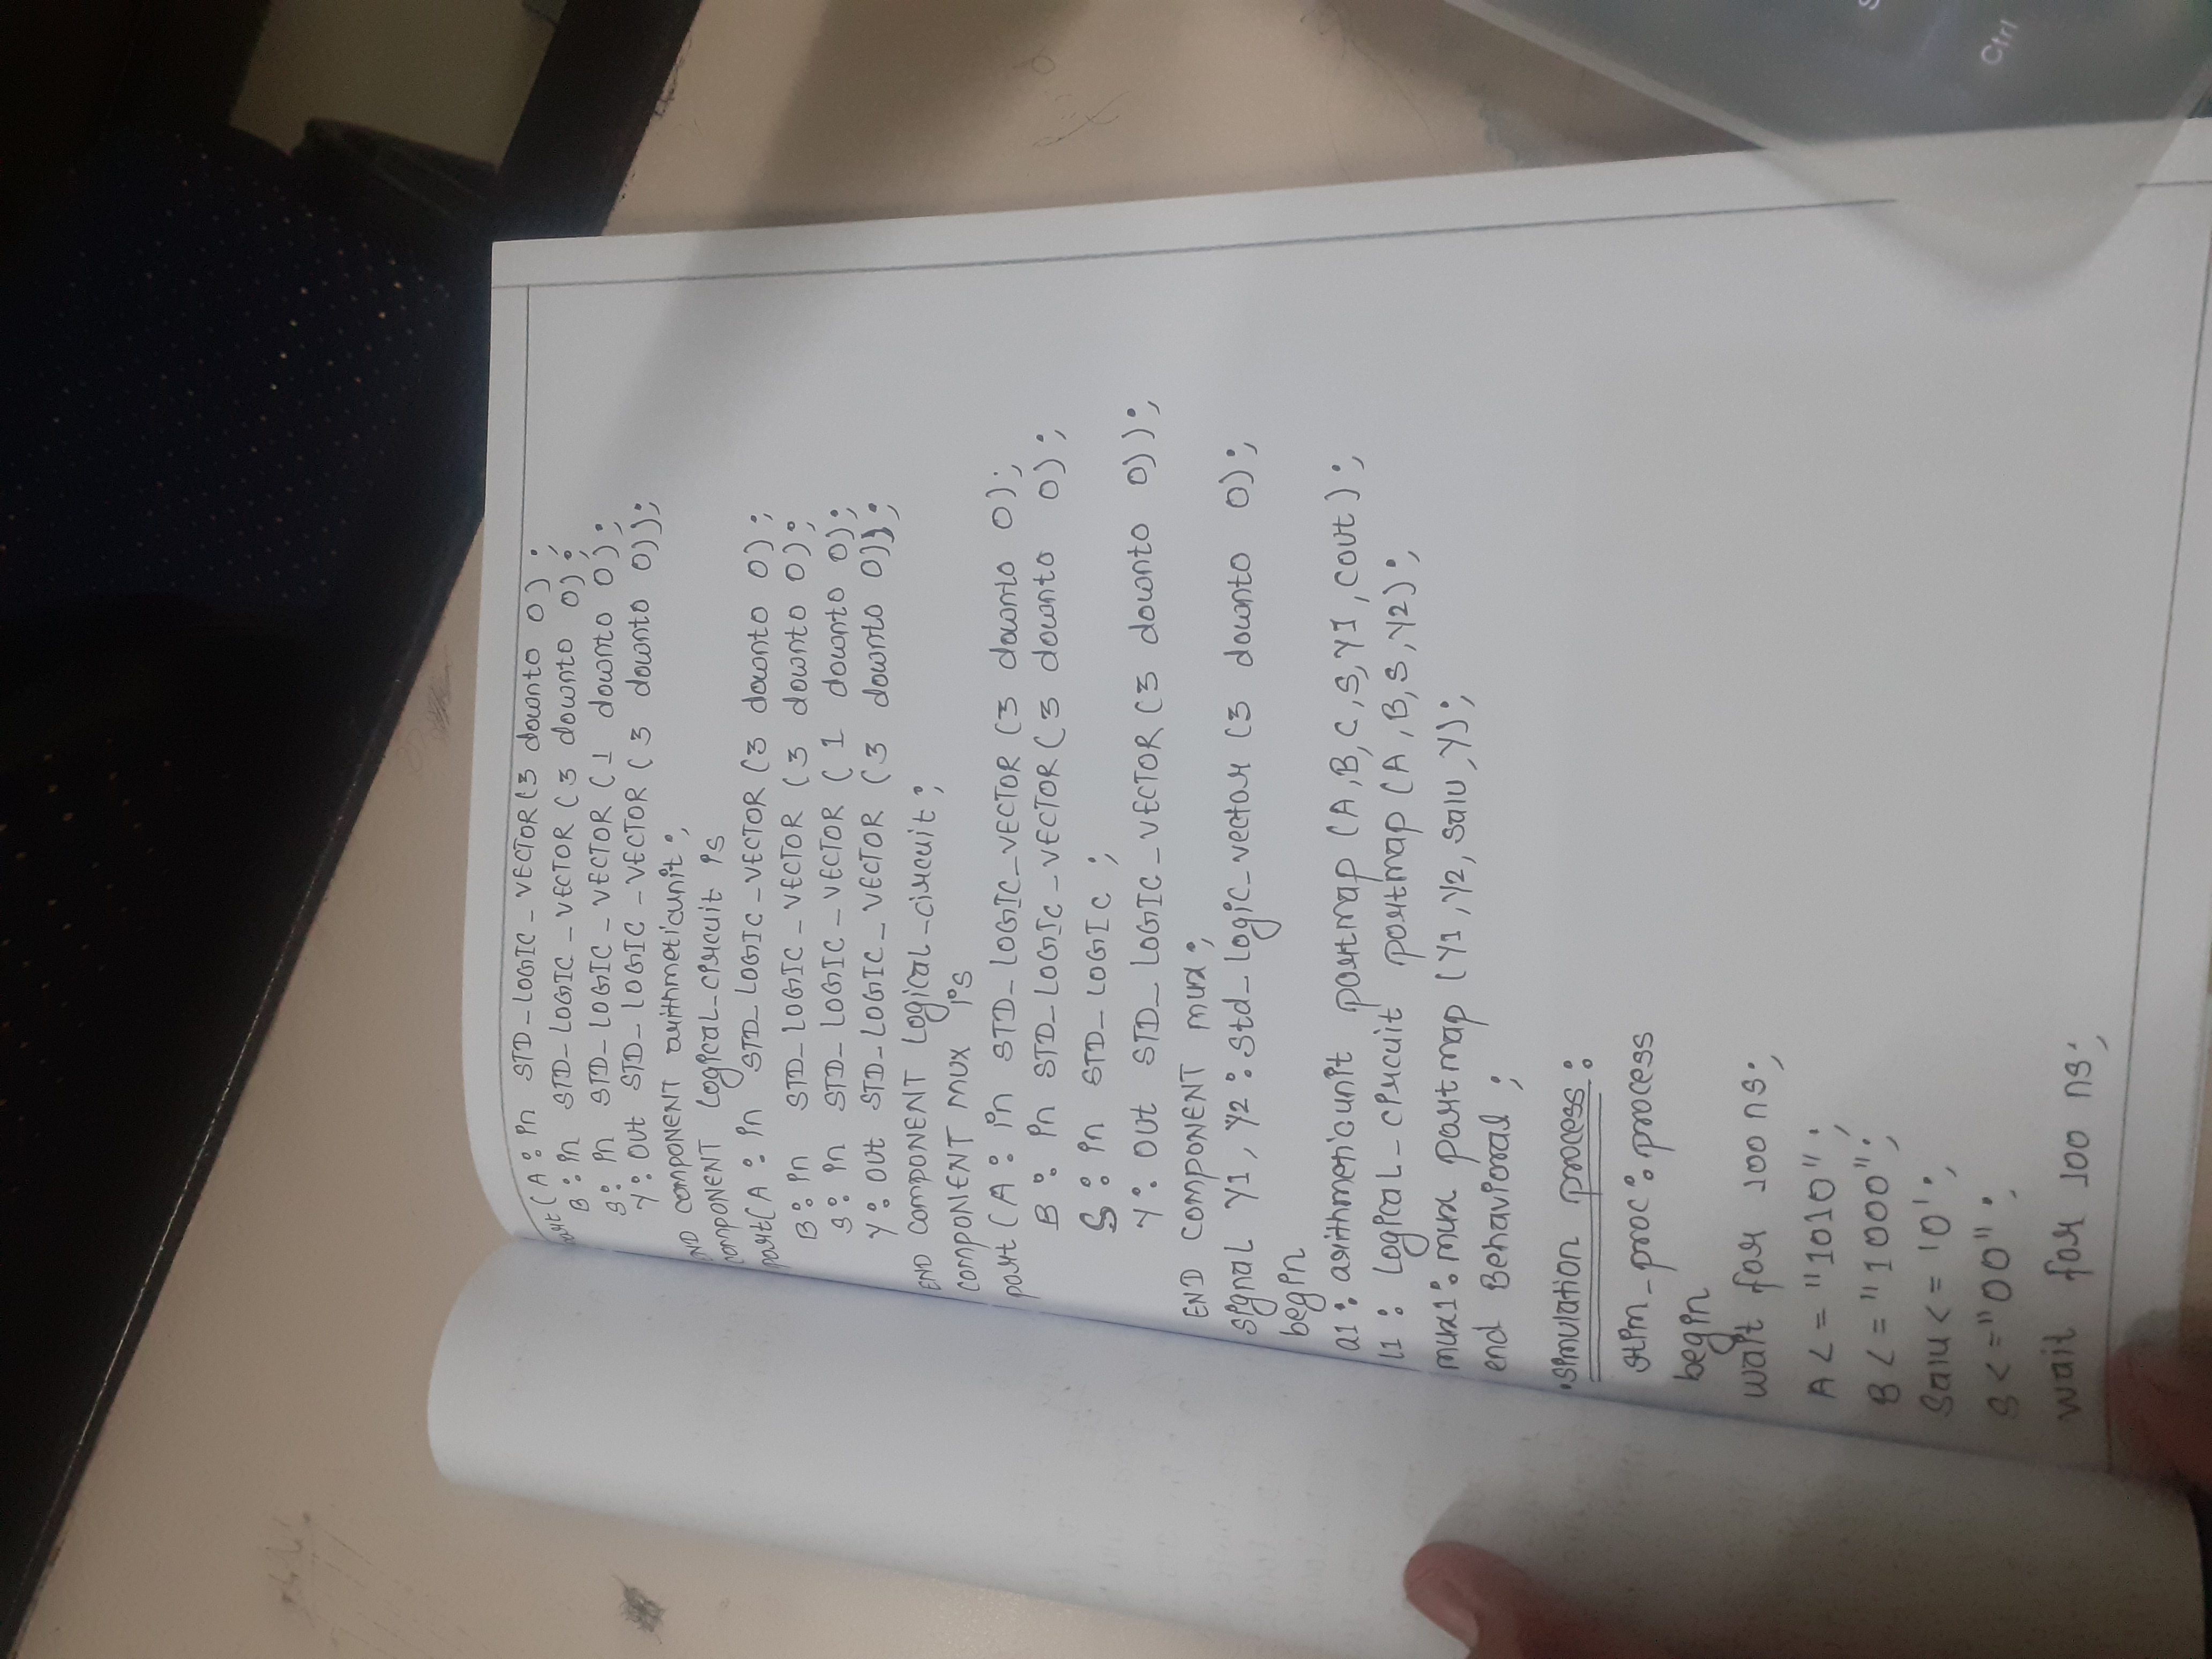 port (A : in STD_LOGIC_VECTOR (3 downto 0) ;
B : in STD_LOGIC_VECTOR (3 downto 0) ;
S : in STD_LOGIC_VECTOR (1 downto 0) ;
Y : out STD_LOGIC_VECTOR (3 downto 0)) ;
END COMPONENT arithmeticunit ;
COMPONENT Logical_circuit is
port (A : in STD_LOGIC_VECTOR (3 downto 0) ;
B : in STD_LOGIC_VECTOR (3 downto 0) ;
S : in STD_LOGIC_VECTOR (1 downto 0) ;
Y : out STD_LOGIC_VECTOR (3 downto 0)) ;
END COMPONENT Logical_circuit ;
COMPONENT MUX is
port (A : in STD_LOGIC_VECTOR (3 downto 0) ;
B : in STD_LOGIC_VECTOR (3 downto 0) ;
S : in STD_LOGIC ;
Y : out STD_LOGIC_VECTOR (3 downto 0)) ;
END COMPONENT mux ;
signal Y1, Y2 : std_logic_vector (3 downto 0) ;
begin
a1 : arithmeticunit portmap (A, B, C, S, Y1, cout) ;
l1 : Logical_circuit portmap (A, B, S, Y2) ;
mux1 : mux portmap (Y1, Y2, salu, Y) ;
end Behavioral ;
• simulation process :
stim_proc : process
begin
wait for 100 ns ;
A <= "1010" ;
B <= "1000" ;
salu <= '0' ;
S <= "00" ;
wait for 100 ns ;
Ctrl